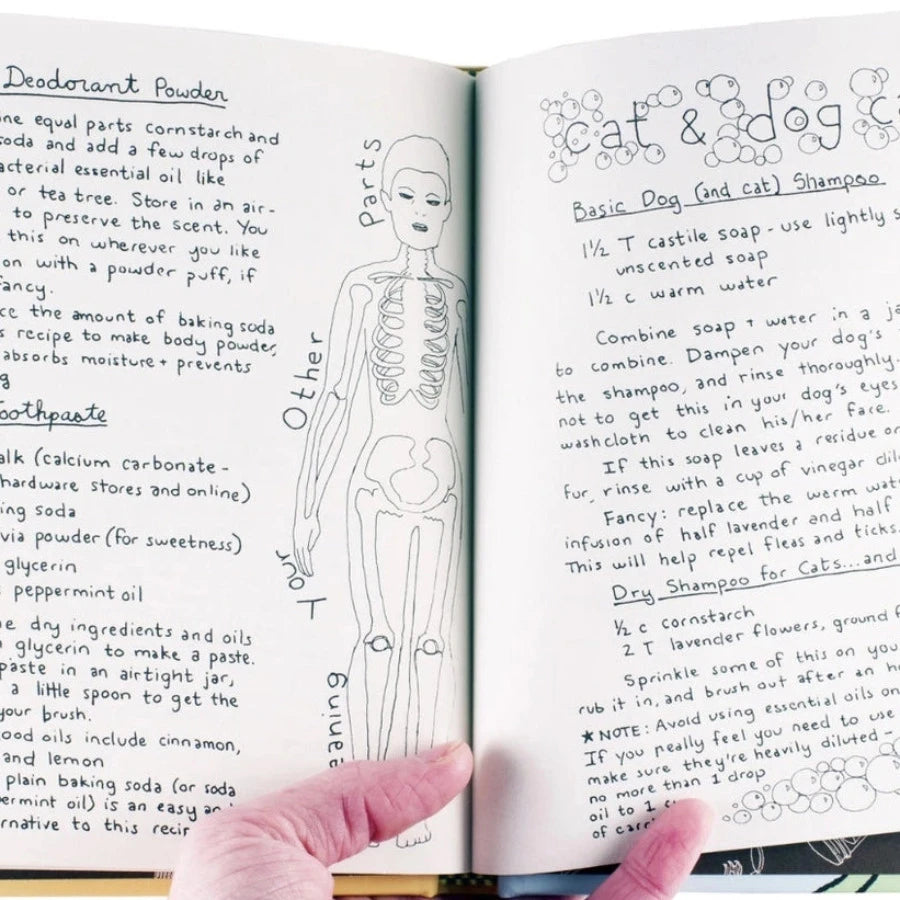 Deodorant Powder
ne equal parts cornstarch and
soda and add a few drops of
acterial essential oil like
or tea tree. Store in an air-
to preserve the scent. You
this on wherever you like
on with a powder puff, if
fancy.
ce the amount of baking soda
s recipe to make body powder,
absorbs moisture + prevents
g
Toothpaste
alk (calcium carbonate -
hardware stores and online)
ing soda
via powder (for sweetness)
glycerin
peppermint oil
e dry ingredients and oils
glycerin to make a paste.
paste in an airtight jar,
a little spoon to get the
your brush.
ood oils include cinnamon,
and lemon
plain baking soda (or soda
ermint oil) is an easy an
rnative to this recip
aning
Your
Other
Parts
cat & dog ca
Basic Dog (and cat) Shampoo
1½ T castile soap - use lightly s
unscented soap
1½ c warm water
Combine soap + water in a ja
to combine. Dampen your dog's
the shampoo, and rinse thoroughly.
not to get this in your dog's eyes
washcloth to clean his/her face.
If this soap leaves a residue on
fur, rinse with a cup of vinegar dil
Fancy: replace the warm wat
infusion of half lavender and half
This will help repel fleas and ticks.
Dry Shampoo for Cats...and
½ c cornstarch
2 T lavender flowers, ground f
Sprinkle some of this on you
rub it in, and brush out after an h
★NOTE: Avoid using essential oils on
If you really feel you need to use
make sure they're heavily diluted -
no more than 1 drop
oil to 1 c
of carri